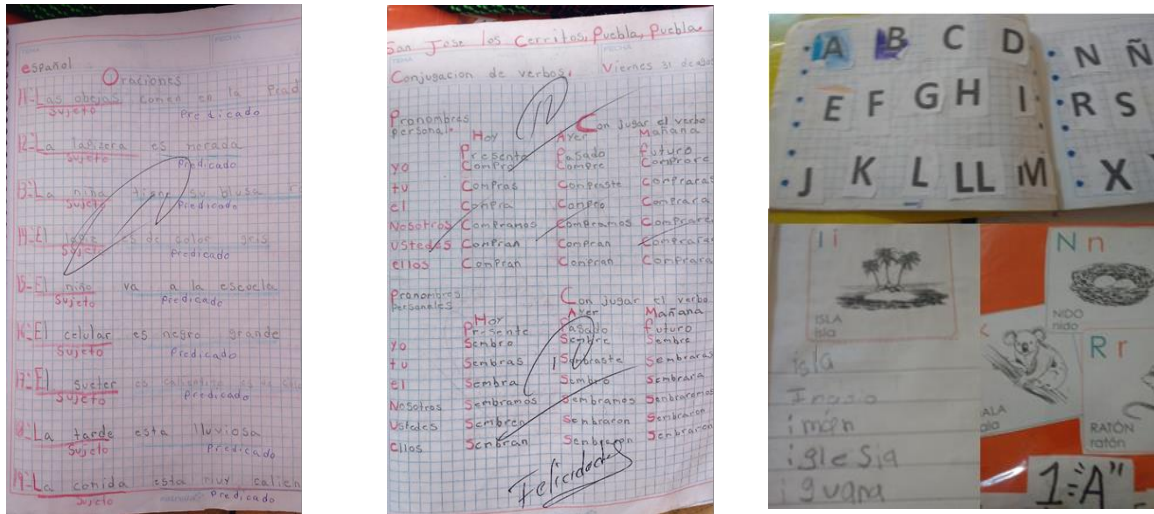 español
Oraciones
11-Las obejas comen en la Prad
Sujeto Predicado
12-La es morada
Sujeto Predicado
13-La niña tiene su blusa
Sujeto Predicado
14-El es de color gris
Sujeto Predicado
15-El niño va a la escuela
Sujeto Predicado
16-El celular es negro grande
Sujeto Predicado
17-El sueter es
Sujeto Predicado
18-La tarde esta lluviosa
Sujeto Predicado
19-La comida esta muy calien
Sujeto Predicado
San Jose los Cerritos, Puebla, Puebla
Conjugacion de verbos. Viernes 31 de
Pronombres
Personal. Con jugar el verbo
Hoy Ayer Mañana
Presente Pasado Futuro
yo Compro Compre Comprare
tu Compras Compraste Compraras
el Compra Compro Comprara
Nosotros Compramos Compramos Comprare
Ustedes Compran Compran
ellos Compran Compran Comprara
Pronombres
Personales Con jugar el verbo
Hoy Ayer Mañana
Presente Pasado Futuro
yo Sembro Sembre Sembre
tu Sembras Sembraste Sembraras
el Sembra Sembro Sembrara
Nosotros Sembramos Sembramos Senbraremos
Ustedes Sembren Senbraron Senbraron
Ellos Senbran Senbraron Senbraron
10
Felicidades
A B C D N Ñ
E F G H I R S
J K L LL M X
I i
ISLA
isla
isla
imán
iglesia
iguana
N n
NIDO
nido
R r
ALA
ala
RATÓN
ratón
1º"A"